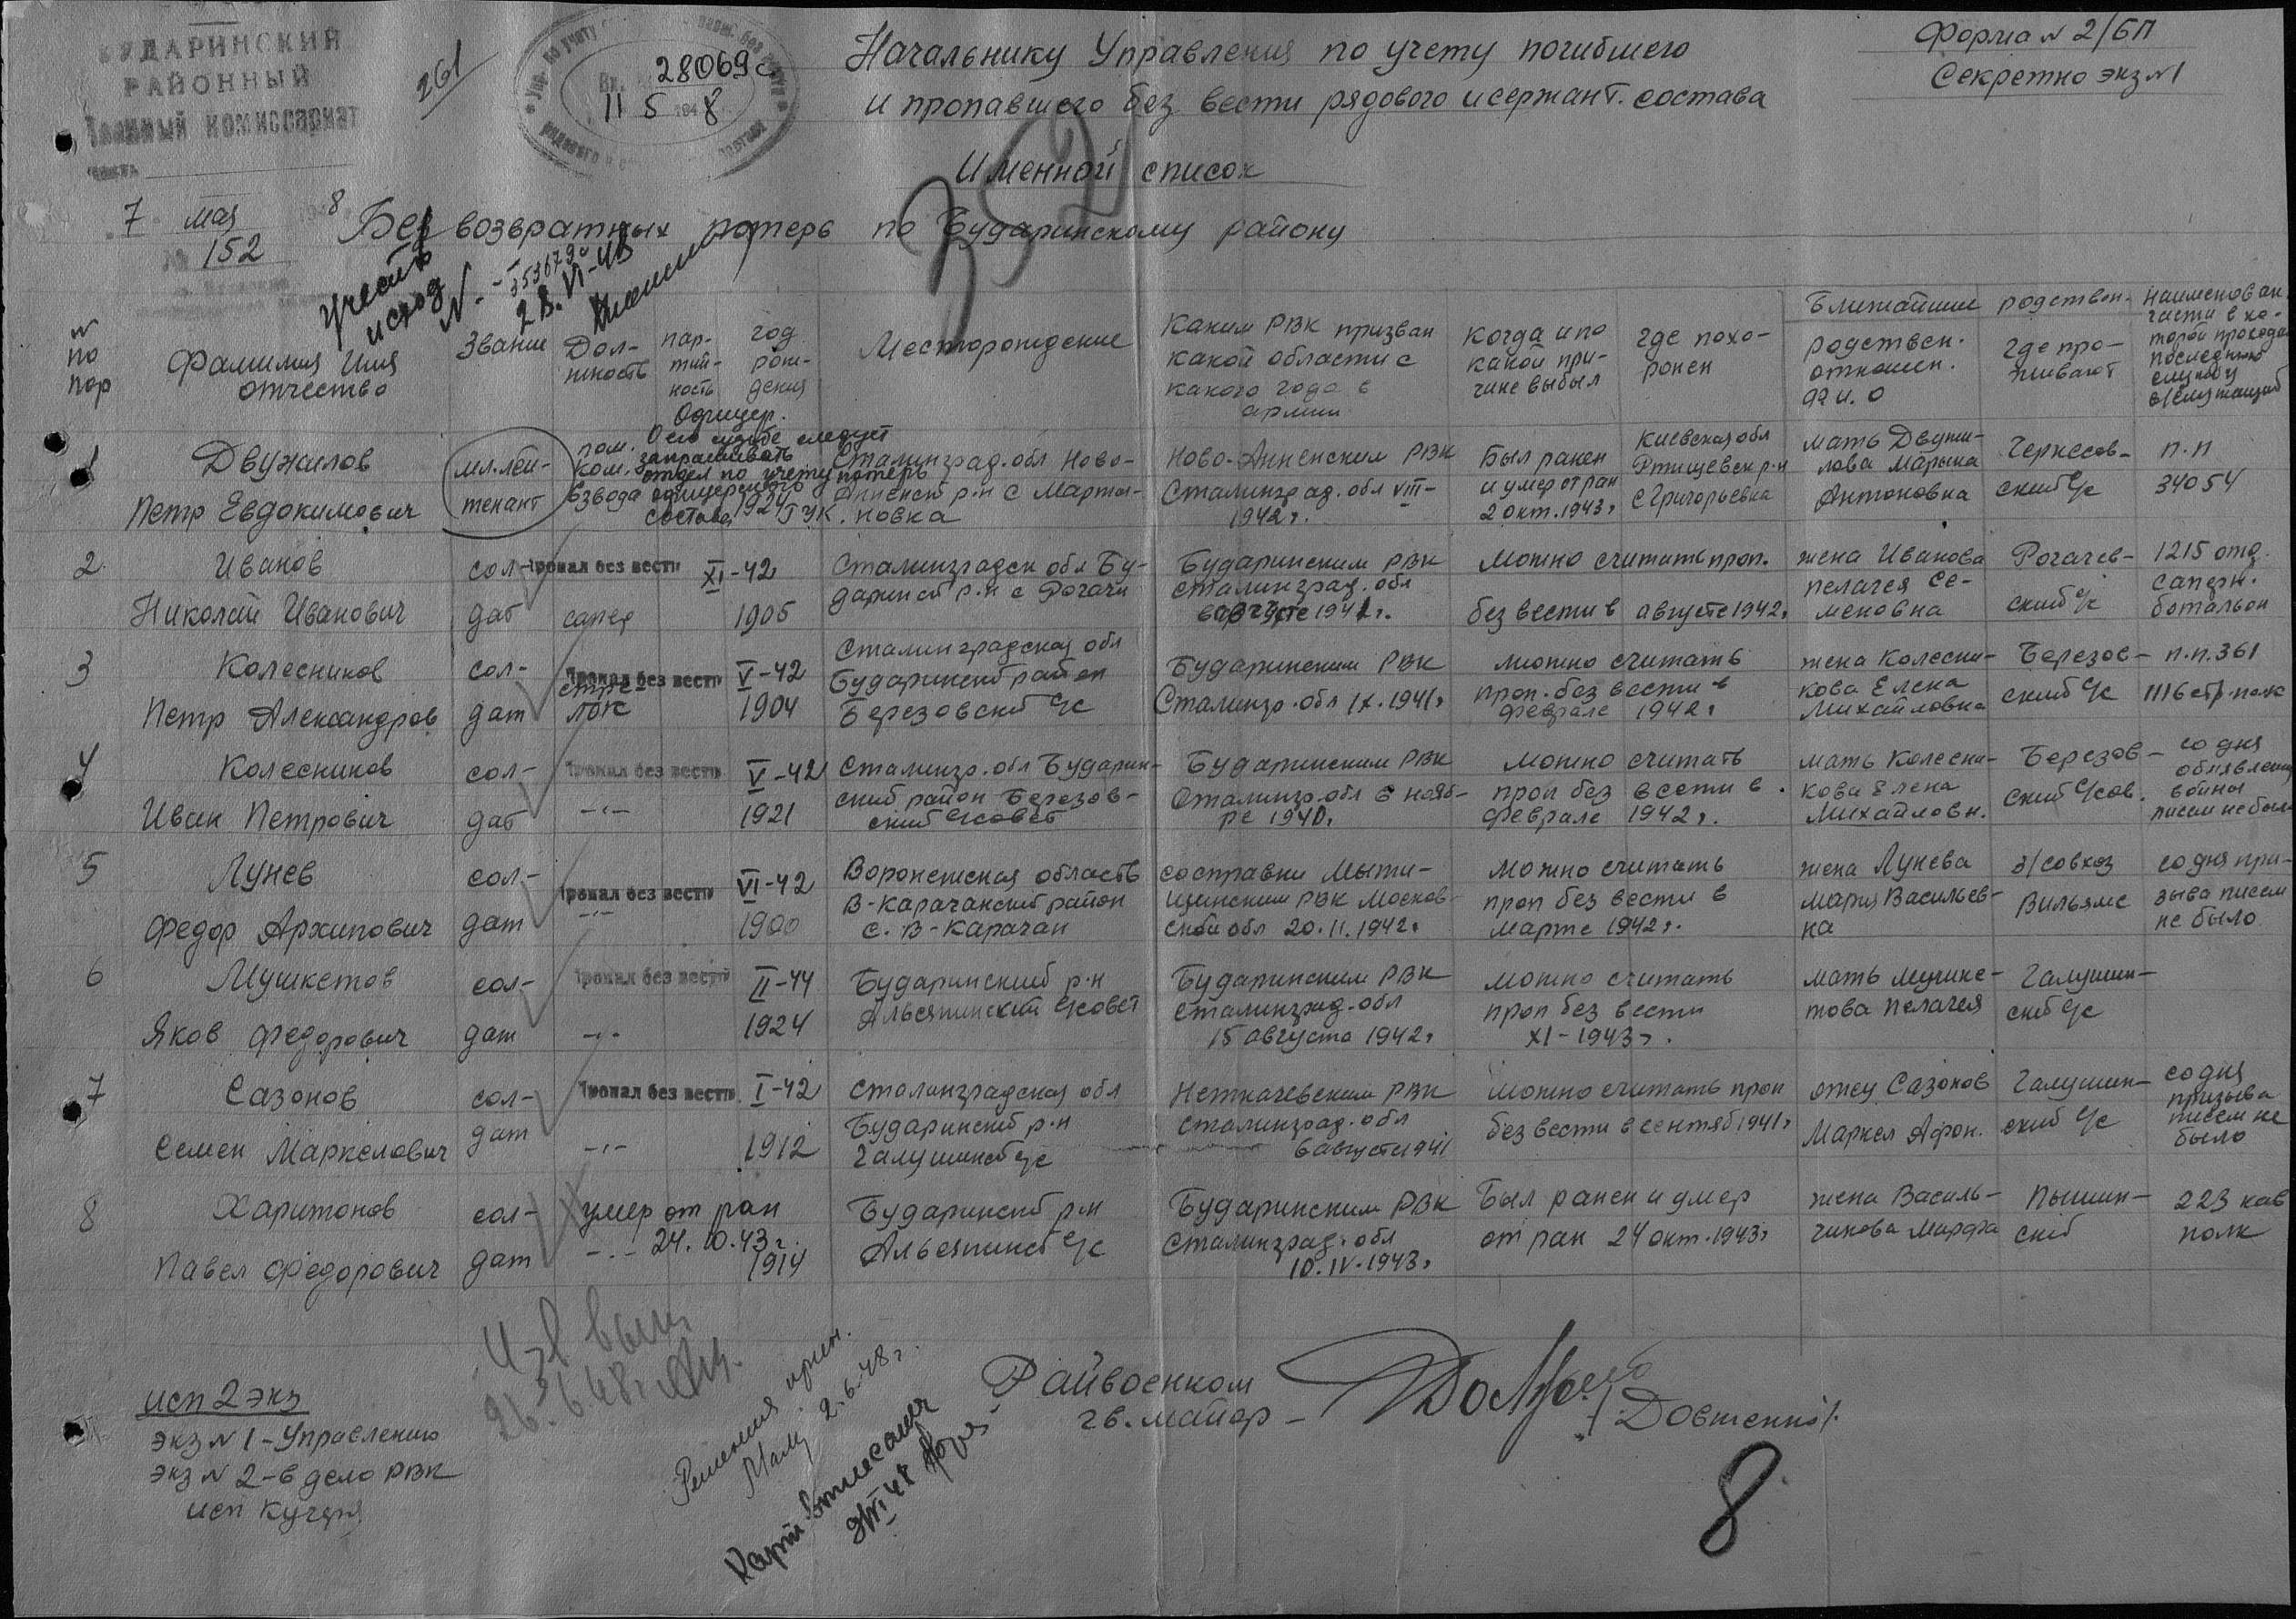 БУДАРИНСКИЙ
РАЙОННЫЙ
Военный комиссариат
Часть
7 мая 1948
№ 152
261
Вх. 28069с
11 5 1948
Начальнику Управления по учету погибшего
и пропавшего без вести рядового и сержант. состава
Форма N 2/БП
Секретно экз N 1
Именной список
Безвозвратных потерь по Бударинскому району
32
N по пор
Фамилия Имя отчество
Звание
Долж-ность
пар-тий-ность
год рож-дения
Месторождение
Каким РВК призван какой области с какого года в армии
когда и по какой при-чине выбыл
где похо-ронен
Ближайшие родствен.
родствен. отношен. ф и. о
где про-живают
Наименован части в ко-торой проходил последнюю службу
1 Двужилов
Петр Евдокимович
мл. лей-тенант
пом. ком. взвода
Офицер.
О его судьбе следует
запрашивать
отдел по учету потерь
офицерского
состава
1924
Сталинград. обл Ново-
Анненск р-н с Марты-
новка
Ново-Анненским РВК
Сталинград. обл VIII-
1942г.
Был ранен
и умер от ран
2 окт. 1943г
Киевская обл
Ртищевск р-н
с Григорьевка
мать Двужи-
лова Марьяна
Антоновна
Черкесов-
ский с/с
п.п
34054
2. Иванов
Николай Иванович
сол-
дат
Пропал без вести XI-42
сапер
1905
Сталинградск обл Бу-
даринск р-н с Рогачи
Бударинским РВК
Сталинград. обл
в августе 1941г.
Можно считать проп.
без вести в августе 1942г
жена Иванова
Пелагея Се-
меновна
Рогачев-
ский с/с
1215 отд.
саперн.
батальон
3 Колесников
Петр Александров
сол-
дат
Пропал без вести V-42
стре-
лок
1904
Сталинградская обл
Бударинский район
Березовский с/с
Бударинским РВК
Сталингр. обл IX. 1941г
можно считать
проп. без вести в
феврале 1942г
жена Колесни-
кова Елена
Михайловна
Березов-
ский с/с
п.п. 361
1116 стр. полк
4 Колесников
Иван Петрович
сол-
дат
Пропал без вести V-42
-"-
1921
Сталингр. обл Бударин-
ский район Березов-
ский с/совет
Бударинским РВК
Сталингр. обл в нояб-
ре 1940г
можно считать
проп без вести в
феврале 1942г.
мать Колесни-
кова Елена
Михайловн.
Березов-
ский с/сов.
со дня
объявления
войны
писем не было
5 Лунев
Федор Архипович
сол-
дат
Пропал без вести VI-42
-"-
1900
Воронежская область
В-Карачанский район
с. В-Карачан
со справки Мыти-
щинским РВК Москов-
ской обл 20. II. 1942г
можно считать
проп без вести в
марте 1942г.
жена Лунева
Мария Васильев-
на
з/совхоз
Вильямс
со дня при-
зыва писем
не было
6 Мушкетов
Яков Федорович
сол-
дат
Пропал без вести II-44
-"-
1924
Бударинский р-н
Альсяпинский с/совет
Бударинским РВК
Сталинград. обл
15 августа 1942г
можно считать
проп без вести
XI-1943г.
мать Мушке-
това Пелагея
Галушин-
ский с/с
7 Сазонов
Семен Маркелович
сол-
дат
Пропал без вести I-42
-"-
1912
Сталинградская обл
Бударинский р-н
Галушинск с/с
Неткачевским РВК
Сталинград. обл
в августе 1941
Можно считать проп
без вести в сентяб 1941г
отец Сазонов
Маркел Афон.
Галушин-
ский с/с
со дня
призыва
писем не
было
8 Харитонов
Павел Федорович
сол-
дат
умер от ран
-"- 24.10.43г.
1914
Бударинский р-н
Альсяпинск с/с
Бударинским РВК
Сталинград. обл
10. IV. 1943г
Был ранен и умер
от ран 24 окт. 1943г
жена Василь-
чикова Марфа
Пышкин-
ский
223 кав
полк
исп 2 экз
экз N 1 - Управлению
экз N 2 - в дело РВК
исп
Изв выс.
26.6.48г.
2.6.48г.
Райвоенком
гв. майор -
8